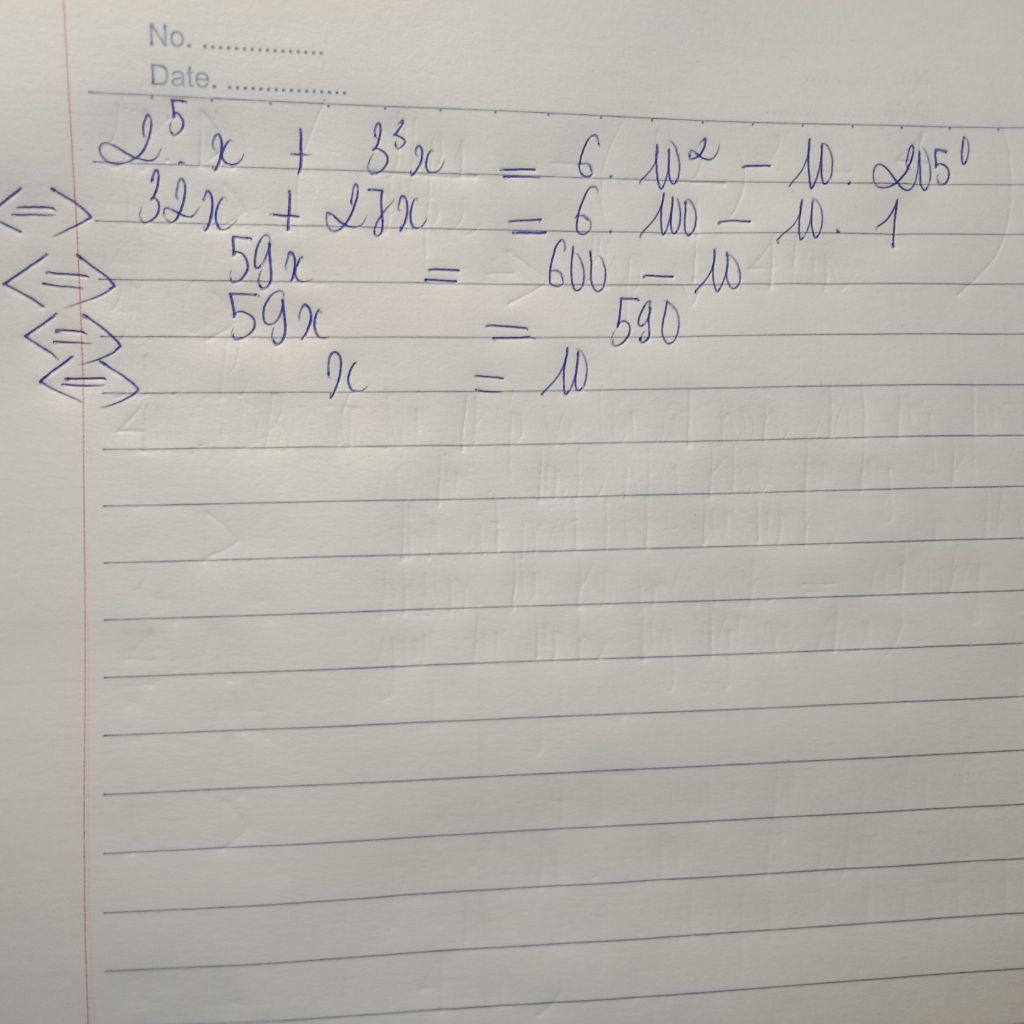 No. ................
Date. ................
2⁵. x + 3³x = 6. 10² - 10. 205⁰
<=> 32x + 27x = 6. 100 - 10. 1
<=> 59x = 600 - 10
<=> 59x = 590
<=> x = 10